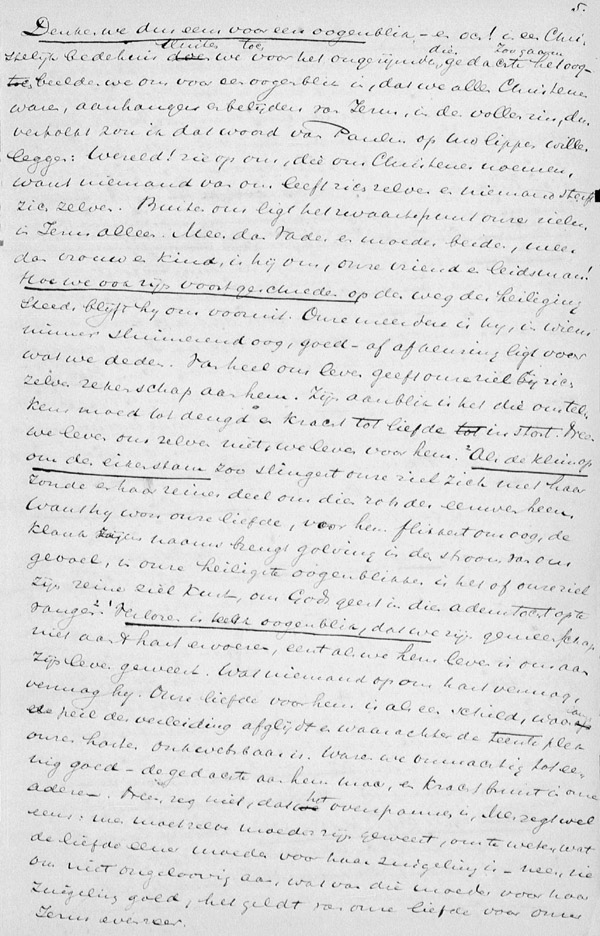 5.
Denken we dus eens voor een oogenblik, – en och! in een Chri-
stelijk bedehuis sluiten toe, we voor het ongerijmde, die zoogaarn gedachte het oog
toe, beelden we ons voor een oogenblik in, dat we allen Christenen
waren, aanhangers en belijders van Jezus, in de vollen zin, dan
verkalkt zou ik dat woord van Paulus op uw lippen willen
leggen: Wereld! zie op ons, die ons Christenen noemen,
want niemand van ons leeft zich zelven en niemand sterft
zich zelven. Buiten ons ligt het zwaartepunt onzer zielen
in Jezus alleen. Meer dan vader en moeder beide, meer
dan vrouw en kind, is hij ons, onze vriend en leidsman!
Hoe we ook zijn voortgeschreden op den weg der heiliging
steeds blijft hy ons vooruit. Onze meerdere is hy, in wiens
nimmer sluimerend oog, goed- of afkeuring ligt voor
wat we deden. Van heel ons leven geeft onze ziel bij zich
zelve rekenschap aan hem. Zijn aanblik is het die ons tel-
kens moed tot deugd en kracht tot liefde in stort. Neen
we leven ons zelven niet, we leven voor hem. Als de klimop
om den eikenstam zoo slingert onze ziel zich met haar
zonde en haar reiner deel om dien rots der eeuwen heen.
Want hy won onze liefde, voor hem flikkert ons oog, de
klank zijns naams brengt golving in den stroom van ons
gevoel, in onze heiligste oogenblikken is het of onze ziel
zijn reine ziel kust, om Gods geest in dien ademtocht op te
vangen! Verloren is elk oogenblik, dat we zijn gemeenschap
niet aan 't hart ervoeren, eerst als we hem leven is ons aan-
zijn leven geweest. Wat niemand op ons hart vermag,
vermag hy. Onze liefde voor hem is als een schild, waar langs
de pijl der verleiding afglijdt en waarachter de teerste plek
onzes harten onkwetsbaar is. Waren we onmachtig tot ee-
nig goed – de gedachte aan hem maar, en kracht bruist in onze
aderen. Neen, zeg niet, dat het overspannen is, Men zegt wel
eens: men moet zelve moeder zijn geweest, om te weten wat
de liefde eener moeder voor haar zuigeling is – neen, zie
ons niet ongeloovig aan, wat van die moeder voor haar
zuigeling goed, het geldt van onze liefde voor onzen
Jezus evenzeer.